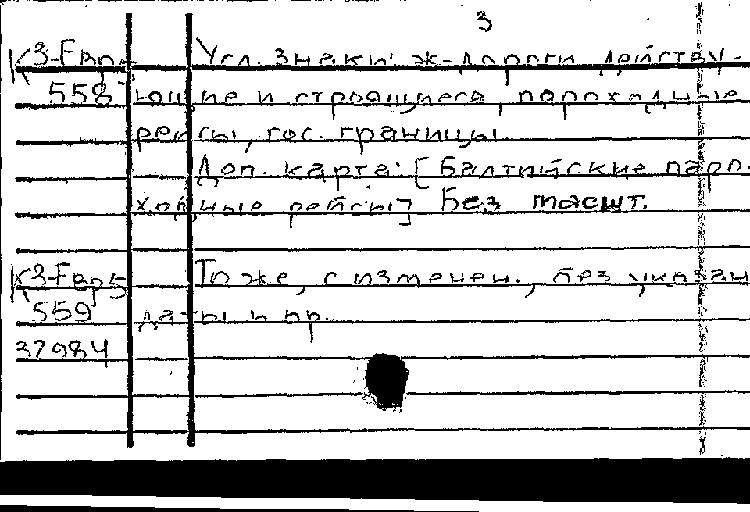 3
К3-Евр. Усл. знаки: ж-дороги действу-
558 ющие и строящиеся, пароходные
рейсы, гос. границы.
Доп. карта: [Балтийские паро-
ходные рейсы] Без масшт.
К3-Евр5 То же, с изменен., без указан
559 даты и пр.
37984